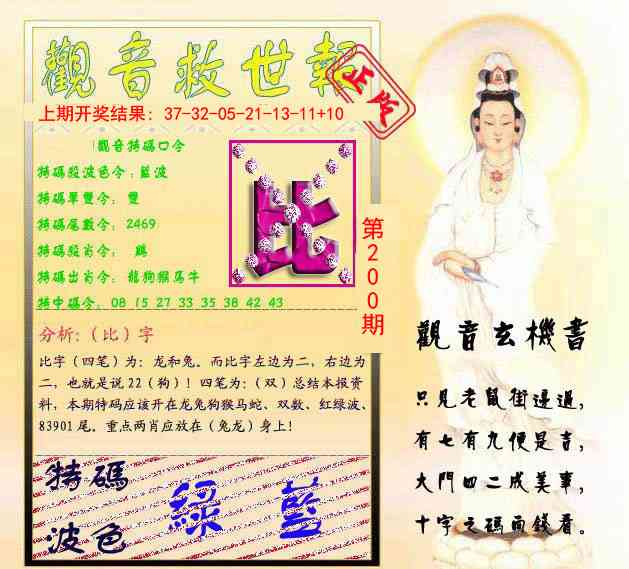 觀音救世報
正版
上期开奖结果：37-32-05-21-13-11+10
觀音特碼口令
特碼段波色令：藍波
特碼單雙令：雙
特碼尾數令：2469
特碼段肖令：鷄
特碼出肖令：龍狗猴马牛
特中碼令：08 15 27 33 35 38 42 43
比
第200期
分析:（比）字
比字（四笔）为：龙和兔。而比字左边为二，右边为
二，也就是说22（狗）！四笔为：（双）总结本报资
料，本期特码应该开在龙兔狗猴马蛇、双数、红绿波、
83901尾。重点两肖应放在（兔龙）身上！
特碼
波色
綠 藍
觀音玄機書
只見老鼠街邊過，
有七有九便是吉，
大門四二成美事，
十字之碼面錢看。